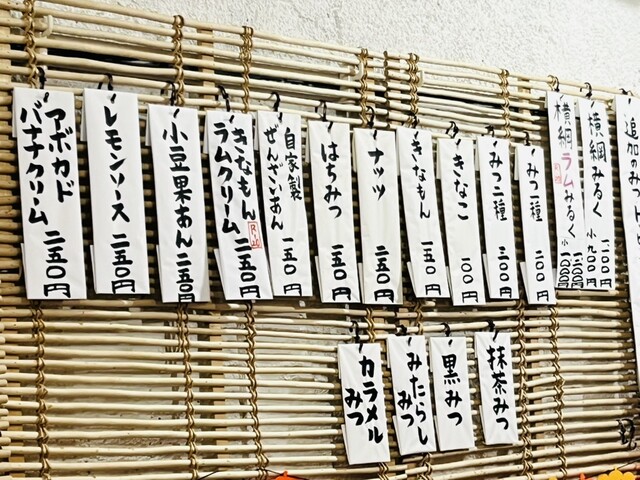 追加のみつ
横綱みるく
小 九〇〇円
横綱ラムみるく
みつ一種 二〇〇円
みつ二種 三〇〇円
きなこ 一〇〇円
きなもん 一五〇円
ナッツ 二五〇円
はちみつ 一五〇円
自家製
ぜんざいあん 一五〇円
きなもん
ラムクリーム 二五〇円
小豆果あん 二五〇円
レモンソース 二五〇円
アボカド
バナナクリーム 二五〇円
抹茶みつ
黒みつ
みたらし
みつ
カラメル
みつ